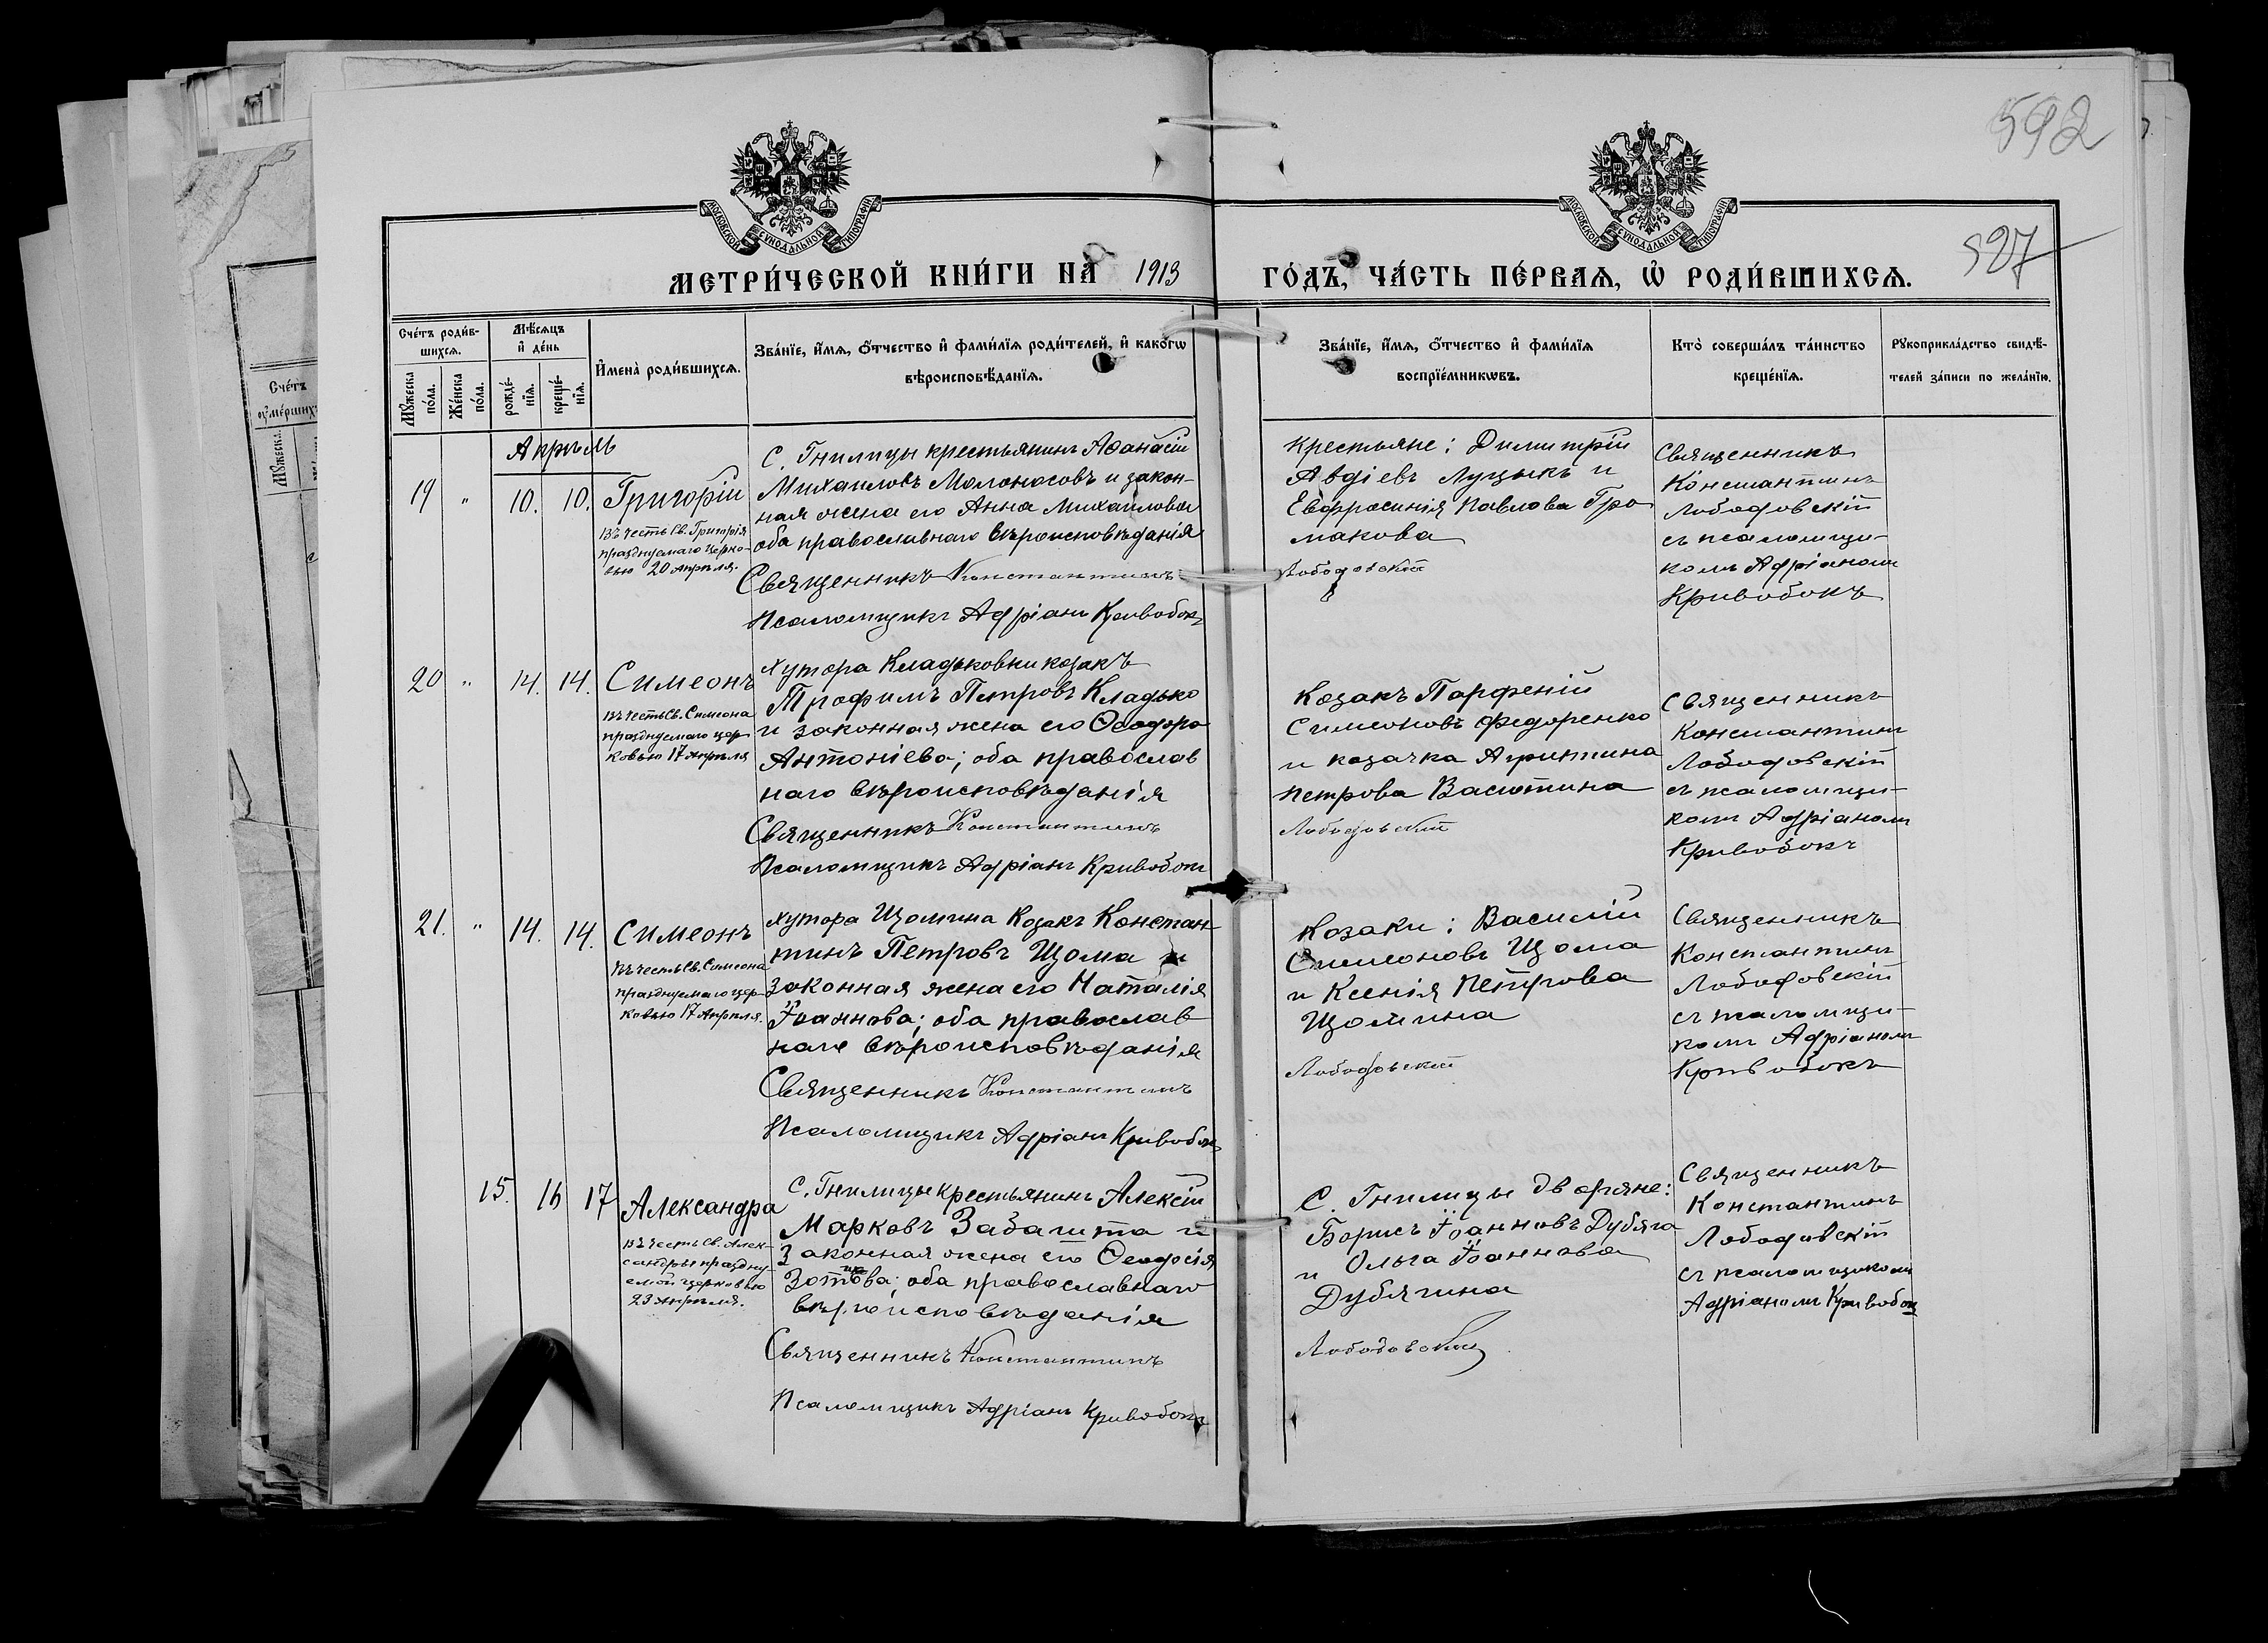 592
527
МОСКОВСКОЙ СѴНОДАЛЬНОЙ ТИПОГРАФІИ
МОСКОВСКОЙ СѴНОДАЛЬНОЙ ТИПОГРАФІИ
МЕТРИ́ЧЕСКОЙ КНИ́ГИ НА̀ 1913 ГО́ДЪ, ЧА́СТЬ ПЕ́РВАѦ, Ѡ҆ РОДИ́ВШИХСѦ.
Сче́тъ роди́в-
шихсѧ.
Мꙋжеска по́ла.
Же́нска по́ла.
Мѣ́сѧцъ
и҆ де́нь
рожде́-
нїѧ.
креще́-
нїѧ.
И҆мена̀ роди́вшихсѧ.
Зва́нїе, и҆́мѧ, ѻ҆́тчество и҆ фами́лїѧ роди́телей, и҆ како́гѡ
вѣроисповѣ́данїѧ.
Зва́нїе, и҆́мѧ, ѻ҆́тчество и҆ фами́лїѧ
воспрїе́мникѡвъ.
Кто̀ соверша́лъ та́инство
креще́нїѧ.
Рꙋкоприкла́дство свидѣ́-
телей за́писи по жела́нїю.
Сче́тъ
ᲂу҆ме́ршихъ
Мꙋжеска.
Апрѣль
19 " 10. 10. Григорій
въ честь Св. Григорія
празднуемаго церко-
вью 20 апрѣля.
С. Гнилицы крестьянинъ Аѳанасій
Михаиловъ Молоносовъ и закон-
ная жена его Анна Михаилова
оба православнаго вѣроисповѣданія
Священникъ Константинъ
Псаломщикъ Адріанъ Кривобокъ
крестьяне: Димитрій
Авдіевъ Луцыкъ и
Евфросинія Павлова Гро
макова
Лободовскій
Священникъ
Константинъ
Лободовскій
съ псаломщи-
комъ Адріаномъ
Кривобокъ
20 " 14. 14. Симеонъ
въ честь Св. Симеона
празднуемаго цер-
ковью 17 апрѣля
хутора Кладьковки козакъ
Трофимъ Петровъ Кладько
и законная жена его Ѳеодора
Антоніева; оба православ
наго вѣроисповѣданія
Священникъ Константинъ
Псаломщикъ Адріанъ Кривобокъ
Козакъ Парфеній
Симеоновъ Федоренко
и козачка Агрипина
Петрова Васютина
Лободовскій
Священникъ
Константинъ
Лободовскій
съ псаломщи-
комъ Адріаномъ
Кривобокъ
21. " 14. 14. Симеонъ
въ честь Св. Симеона
празднуемаго цер-
ковью 17 Апрѣля.
хутора Щомина Козакъ Констан-
тинъ Петровъ Щома и
законная жена его Наталія
Іоаннова; оба православ
наго вѣроисповѣданія
Священникъ Константинъ
Псаломщикъ Адріанъ Кривобокъ
Козаки: Василій
Симеоновъ Щома
и Ксенія Петрова
Щомина
Лободовскій
Священникъ
Константинъ
Лободовскій
съ псаломщи-
комъ Адріаномъ
Кривобокъ
15. 16 17 Александра
въ честь Св. Алек-
сандры праздну-
емой церковью
23 апрѣля.
С. Гнилицы крестьянинъ Алексій
Марковъ Забашта и
законная жена его Ѳеодосія
Зотикова; оба православнаго
вѣроисповѣданія
Священникъ Константинъ
Псаломщикъ Адріанъ Кривобокъ
С. Гнилицы дворяне:
Борисъ Іоанновъ Дубяга
и Ольга Іоаннова
Дубягина
Лободовскій
Священникъ
Константинъ
Лободовскій
съ псаломщикомъ
Адріаномъ Кривобок